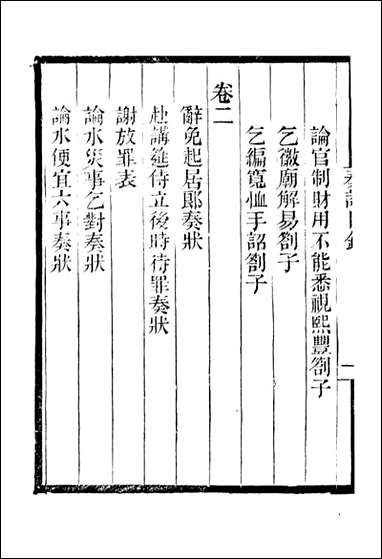 論官制財用不能悉視熙豐劄子
乞徽廟解易劄子
乞編寬恤手詔劄子
卷二
辭免起居郎奏狀
赴講筵侍立後時待罪奏狀
謝放罪表
論水災事乞對奏狀
論水便宜六事奏狀